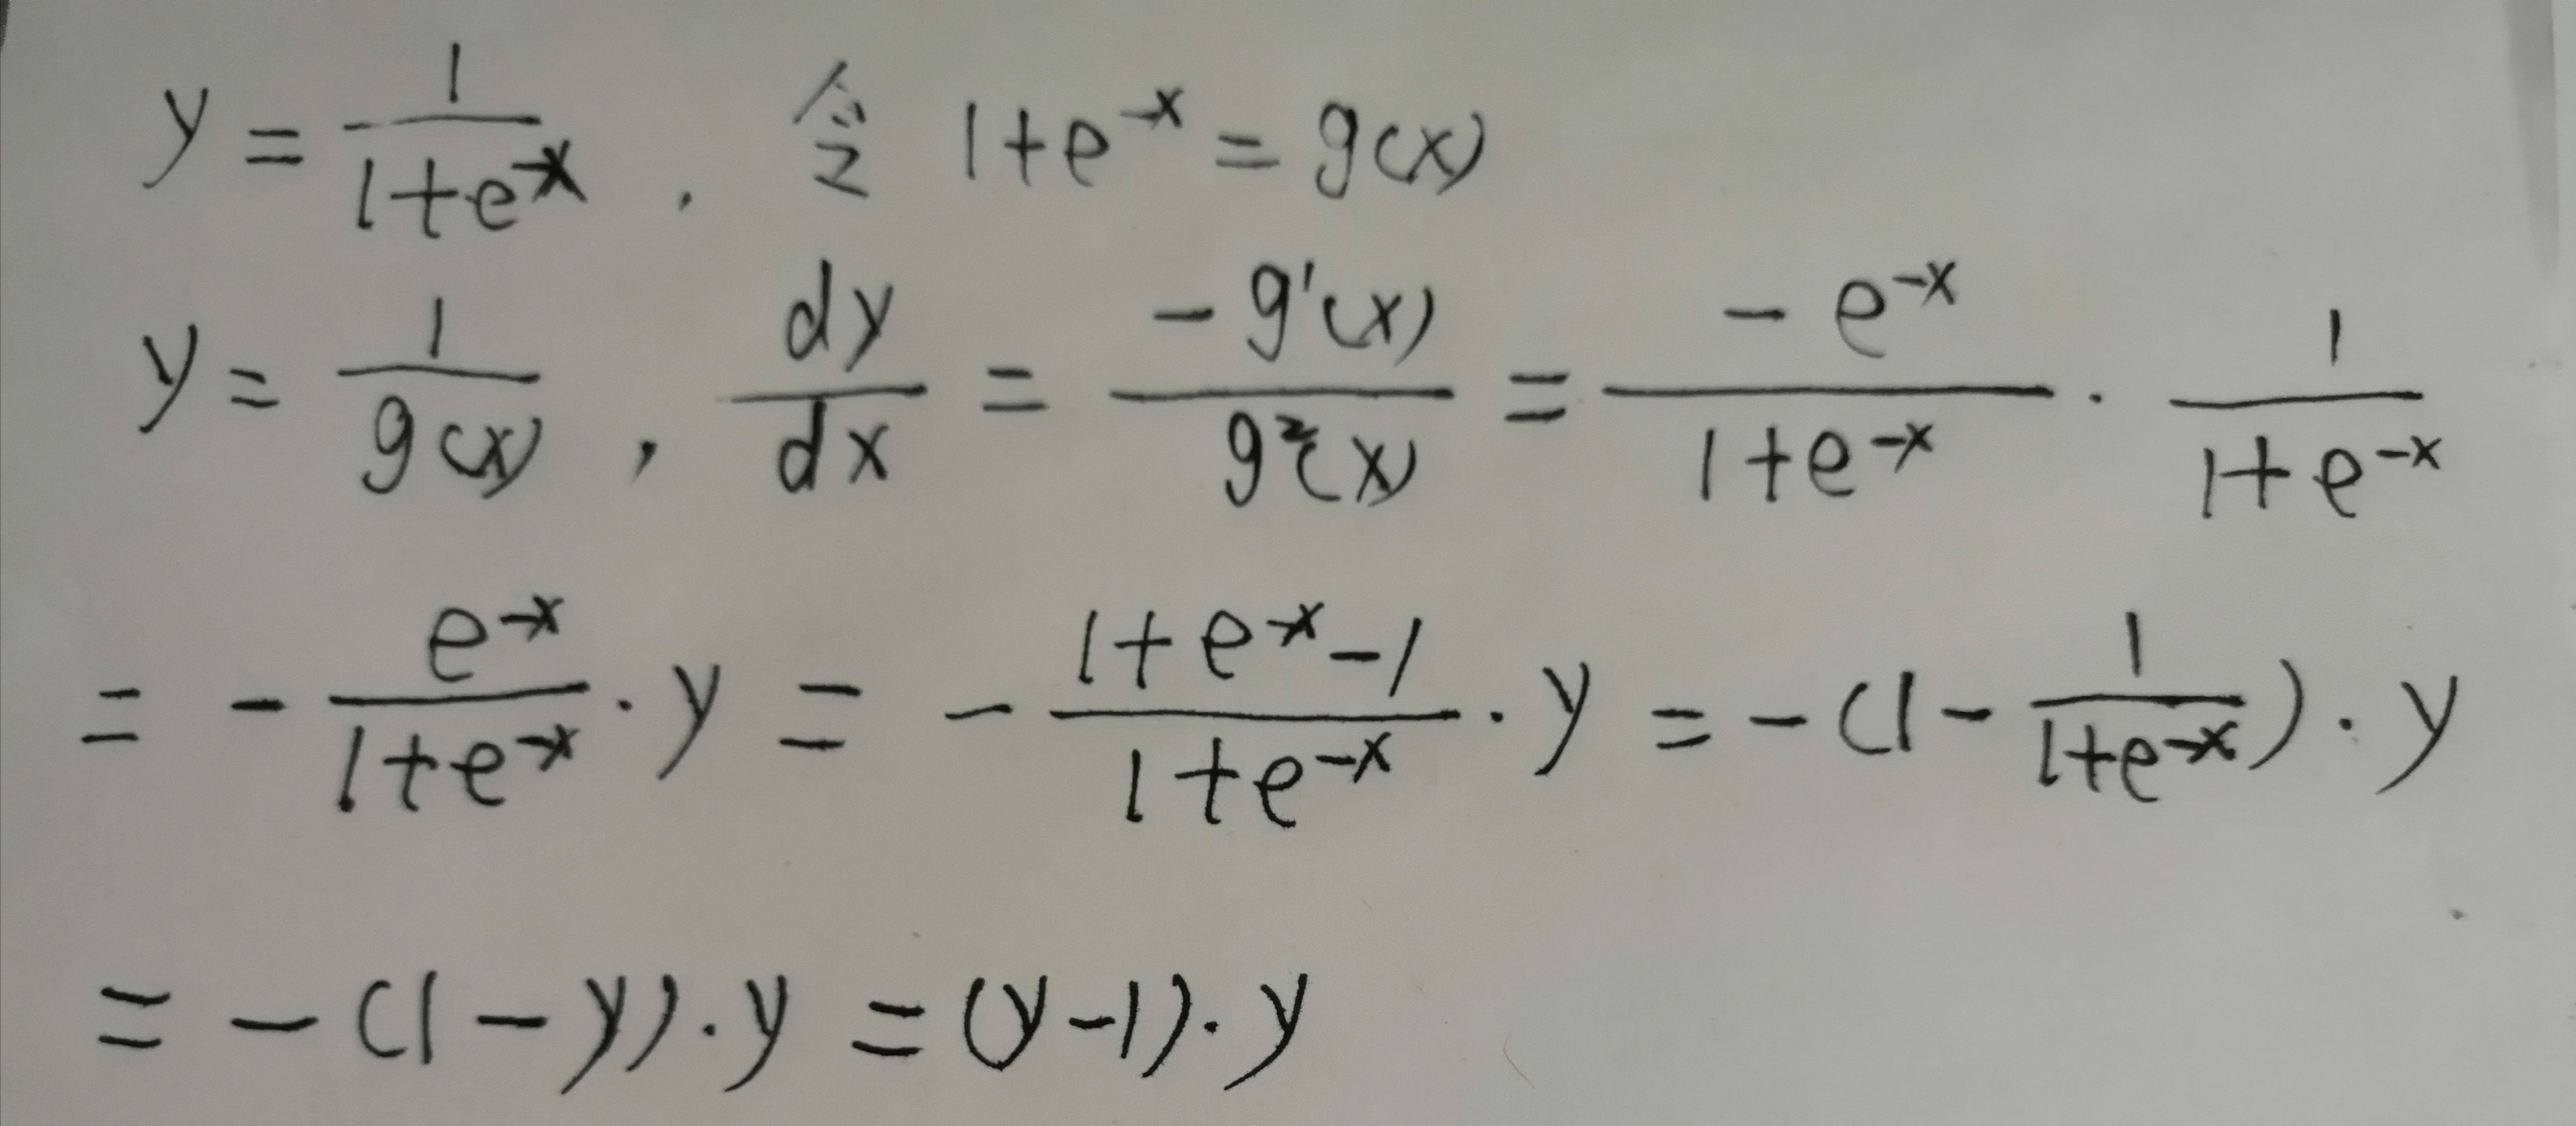 y = 1/(1+e^-x) , 令 1+e^-x = g(x)
y = 1/g(x) , dy/dx = -g'(x)/g²(x) = -e^-x/(1+e^-x) · 1/(1+e^-x)
= - e^-x/(1+e^-x) · y = - (1+e^-x-1)/(1+e^-x) · y = -(1 - 1/(1+e^-x)) · y
= -(1-y) · y = (y-1) · y